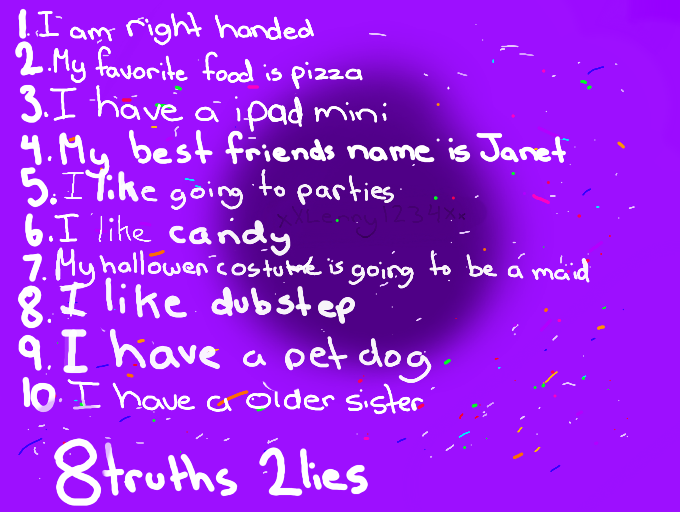 1. I am right handed
2. My favorite food is pizza
3. I have a ipad mini
4. My best friends name is Janet
5. I like going to parties
6. I like candy
7. My hallowen costume is going to be a maid
8. I like dubstep
9. I have a pet dog
10. I have a older sister
8 truths 2 lies